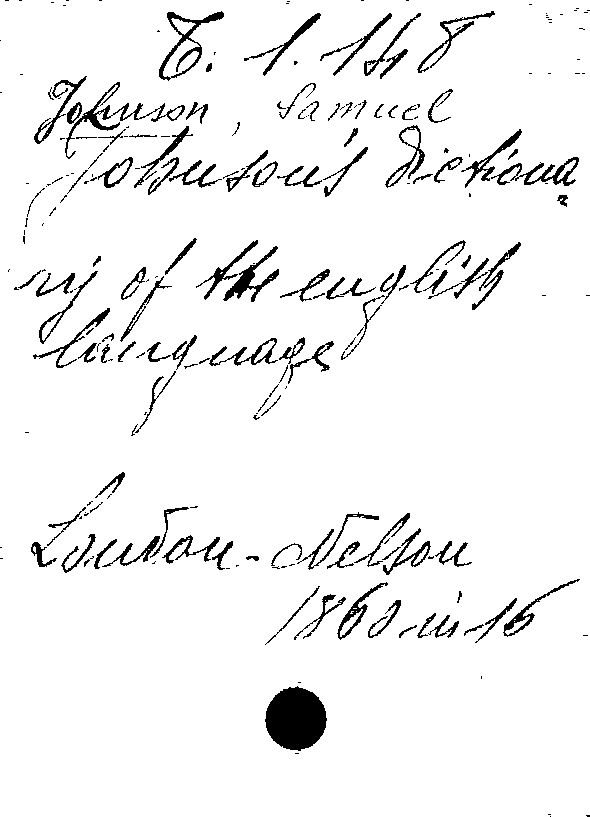 T. 1. 148
Johnson, Samuel
Johnson's dictiona
ry of the english
language
London - Nelson
1860 in 16